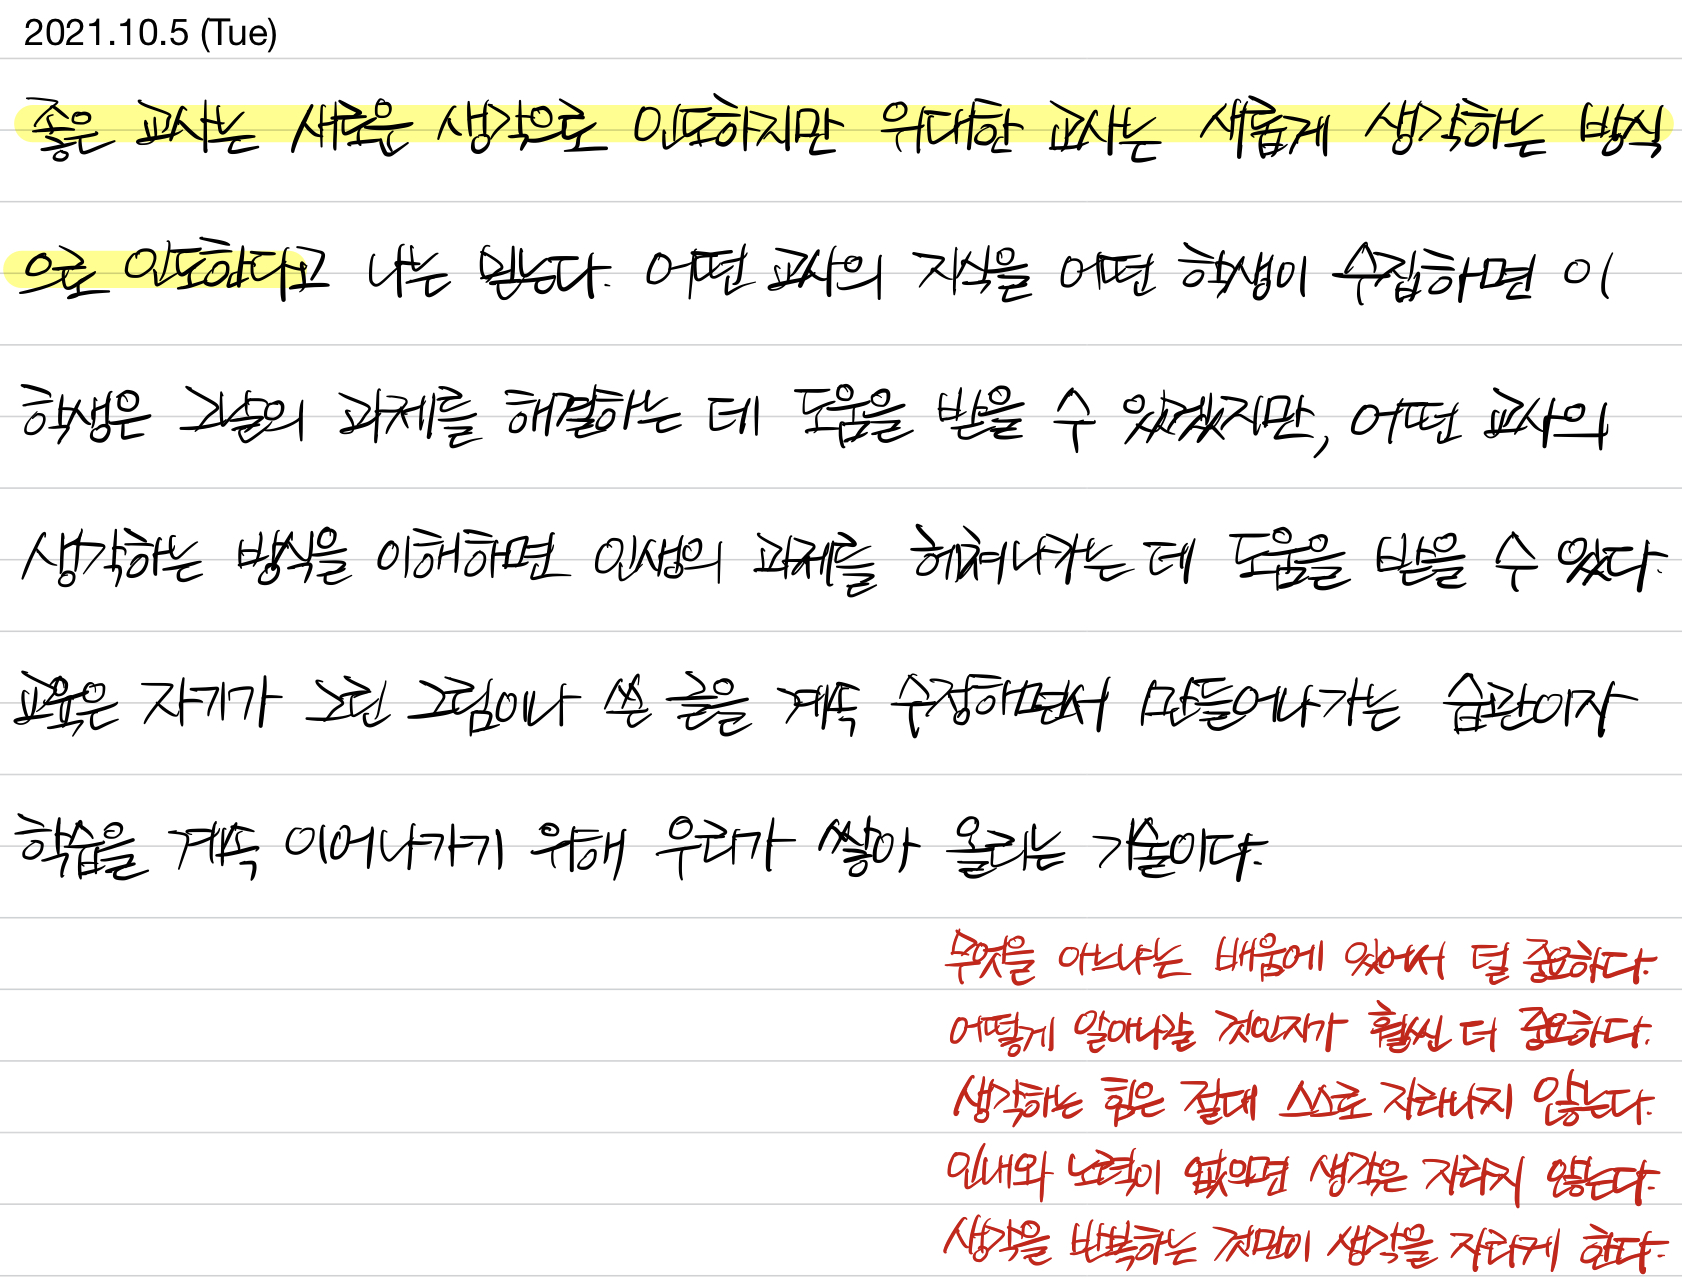 2021.10.5 (Tue)
좋은 교사는 새로운 생각으로 인도하지만 위대한 교사는 새롭게 생각하는 방식
으로 인도한다고 나는 믿는다. 어떤 교사의 지식을 어떤 학생이 수집하면 이
학생은 그날의 과제를 해결하는 데 도움을 받을 수 있겠지만, 어떤 교사의
생각하는 방식을 이해하면 인생의 과제를 헤쳐나가는 데 도움을 받을 수 있다.
교육은 자기가 그린 그림이나 쓴 글을 계속 수정하면서 만들어나가는 습관이자
학습을 계속 이어나가기 위해 우리가 쌓아 올리는 기술이다.
무엇을 아느냐는 배움에 있어서 덜 중요하다.
어떻게 알아나갈 것인지가 훨씬 더 중요하다.
생각하는 힘은 절대 스스로 자라나지 않는다.
인내와 노력이 없으면 생각은 자라지 않는다.
생각을 반복하는 것만이 생각을 자라게 한다.